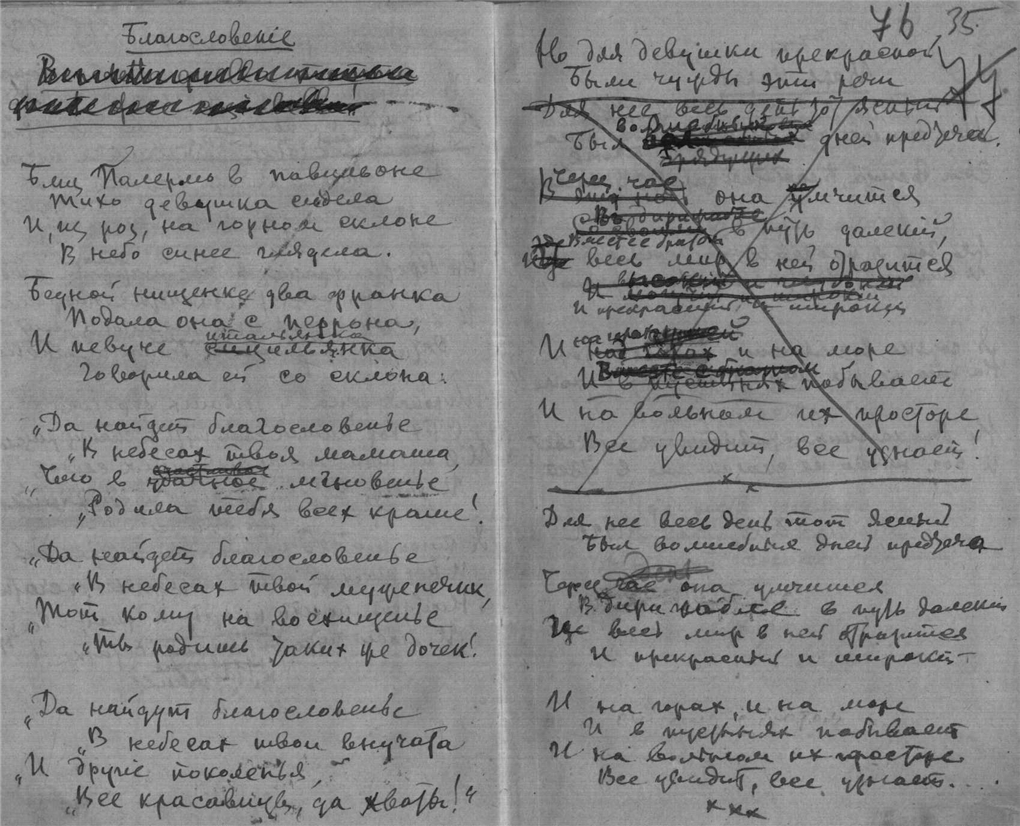 Благословеніе
Близ Палермо в павильоне
Тихо девушка сидела
И, из роз, на горном склоне
В небо синее глядела.
Бедной нищенке два франка
Подала она с перрона,
И певуче итальянка
сицильянка
Говорила ей со склона:
„Да найдет благословенье
„В небесах твоя мамаша,
„Что в удачное мгновенье
„Родила тебя всех краше!
„Да найдет благословенье
„В небесах твой муженечик,
„Тот кому на восхищенье
„Ты родишь таких же дочек!
„Да найдут благословенье
„В небесах твои внучата
„И другие поколенья,
„Все красавицы, да хваты!“
76 35
77
Но для девушки прекрасной
Были чужды эти речи
Для нее весь день тот ясный
волшебный
Был дней предтеча.
грядущих
Через час
она умчится
В дирижабле
в путь далекий,
Вместе с братом
Где весь мир в ней отразится
И прекрасный и широкий
И на горах и на море
Вместе с братом
И в пустынях побывает
И на вольном их просторе
Все увидит, все узнает!
Для нее весь день тот ясный
Был волшебных дней предтеча
Через час она умчится
В дирижабле в путь далекий
Где весь мир в ней отразится
И прекрасный и широкий
И на горах, и на море
И в пустынях побывает
И на вольном их просторе
Все увидит, все узнает...
× × ×